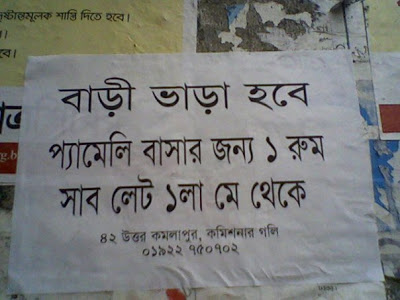 দৃষ্টান্তমূলক শাস্তি দিতে হবে।
বাড়ী ভাড়া হবে
প্যামেলি বাসার জন্য ১ রুম
সাব লেট ১লা মে থেকে
৪২ উত্তর কমলাপুর, কমিশনার গলি
০১৯২২ ৭৫০৭০২